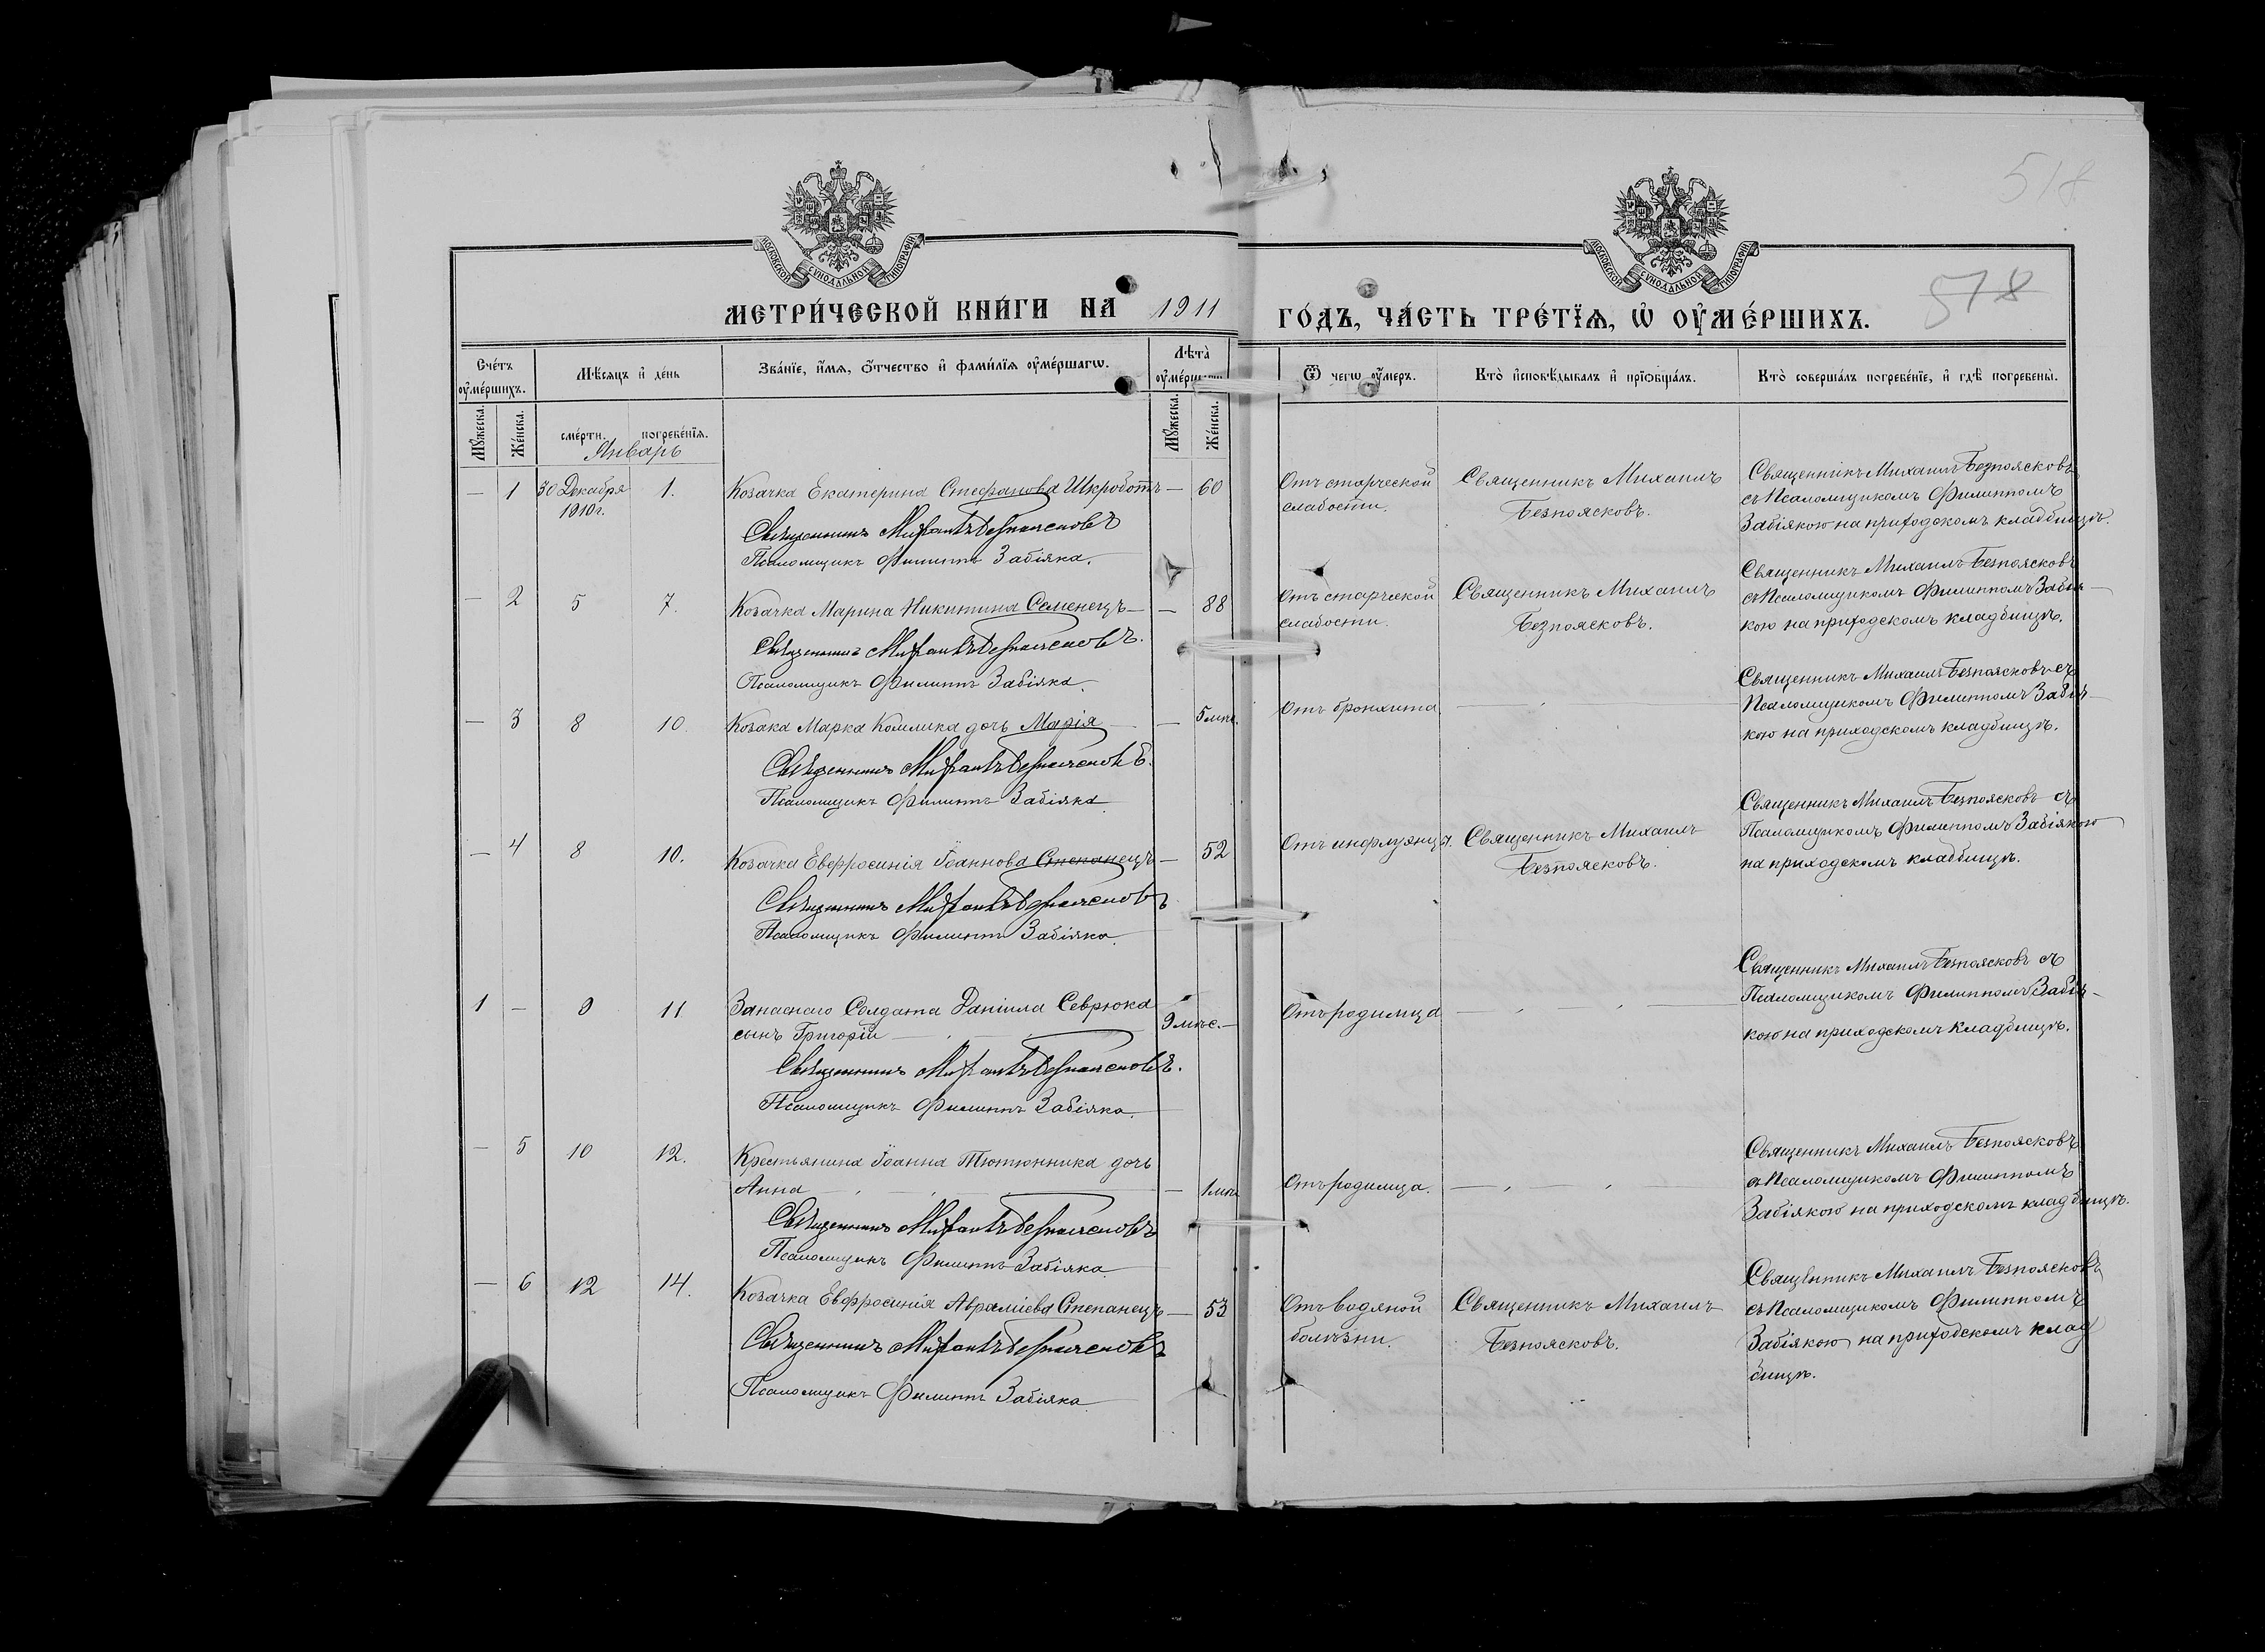 518
МОСКОВСКОЙ СѴНОДАЛЬНОЙ ТИПОГРАФІИ
МОСКОВСКОЙ СѴНОДАЛЬНОЙ ТИПОГРАФІИ
МЕТРИ́ЧЕСКОЙ КНИ́ГИ НА 1911
ГО́ДЪ, ЧА́СТЬ ТРЕ́ТЇѦ, Ѡ҆ ОУ҆МЕ́РШИХЪ.
518
Сче́тъ оу҆ме́ршихъ.
Мѣ́сяцъ и҆ де́нь
Зва́нїе, и҆́мя, ѻ҆́тчество и҆ фами́лїя оу҆ме́ршагѡ.
Лѣта̀ оу҆ме́ршагѡ
Ѿ чегѡ̀ оу҆́меръ.
Кто̀ и҆сповѣ́дывалъ и҆ прїѡбща́лъ.
Кто̀ соверша́лъ погребе́нїе, и҆ гдѣ̀ погребены̀.
Мꙋ́жеска.
Же́нска.
сме́рти.
погребе́нїя.
Мꙋ́жеска.
Же́нска.
Январь
— 1 30 Декабря 1. Козачка Екатерина Стефанова Шкроботъ — 60
1910 г.
Священникъ Михаилъ Безпоясковъ
Псаломщикъ Филиппъ Забіяка.
Отъ старческой
слабости.
Священникъ Михаилъ
Безпоясковъ.
Священникъ Михаилъ Безпоясковъ
съ Псаломщикомъ Филиппомъ
Забіякою на приходскомъ кладбищѣ.
— 2 5 7. Козачка Марина Никитина Семенецъ — — 88
Священникъ Михаилъ Безпоясковъ.
Псаломщикъ Филиппъ Забіяка.
Отъ старческой
слабости.
Священникъ Михаилъ
Безпоясковъ.
Священникъ Михаилъ Безпоясковъ
съ Псаломщикомъ Филиппомъ Забія-
кою на приходскомъ кладбищѣ.
— 3 8 10. Козака Марка Комлика дочь Марія — — 5 мѣс.
Священникъ Михаилъ Безпоясковъ.
Псаломщикъ Филиппъ Забіяка
Отъ бронхита
Священникъ Михаилъ Безпоясковъ съ
Псаломщикомъ Филиппомъ Забія-
кою на приходскомъ кладбищѣ.
— 4 8 10. Козачка Евфросинія Іоаннова Степанецъ — 52
Священникъ Михаилъ Безпоясковъ
Псаломщикъ Филиппъ Забіяка.
Отъ инфлуэнцы.
Священникъ Михаилъ
Безпоясковъ.
Священникъ Михаилъ Безпоясковъ съ
Псаломщикомъ Филиппомъ Забіякою
на приходскомъ кладбищѣ.
1 — 9 11 Запаснаго Солдата Даніила Севрюка
сынъ Григорій — 9 мѣс. —
Священникъ Михаилъ Безпоясковъ.
Псаломщикъ Филиппъ Забіяка.
Отъ родимца
Священникъ Михаилъ Безпоясковъ съ
Псаломщикомъ Филиппомъ Забія-
кою на приходскомъ кладбищѣ.
— 5 10 12. Крестьянина Іоанна Тютюнника дочь
Анна — — 1 мѣс
Священникъ Михаилъ Безпоясковъ
Псаломщикъ Филиппъ Забіяка.
Отъ родимца.
Священникъ Михаилъ Безпоясковъ
съ Псаломщикомъ Филиппомъ
Забіякою на приходскомъ кладбищѣ.
— 6 12 14. Козачка Евфросинія Авраміева Степанецъ — 53
Священникъ Михаилъ Безпоясковъ
Псаломщикъ Филиппъ Забіяка
Отъ водяной
болѣзни.
Священникъ Михаилъ
Безпоясковъ.
Священникъ Михаилъ Безпоясковъ
съ Псаломщикомъ Филиппомъ
Забіякою на приходскомъ клад
бищѣ.